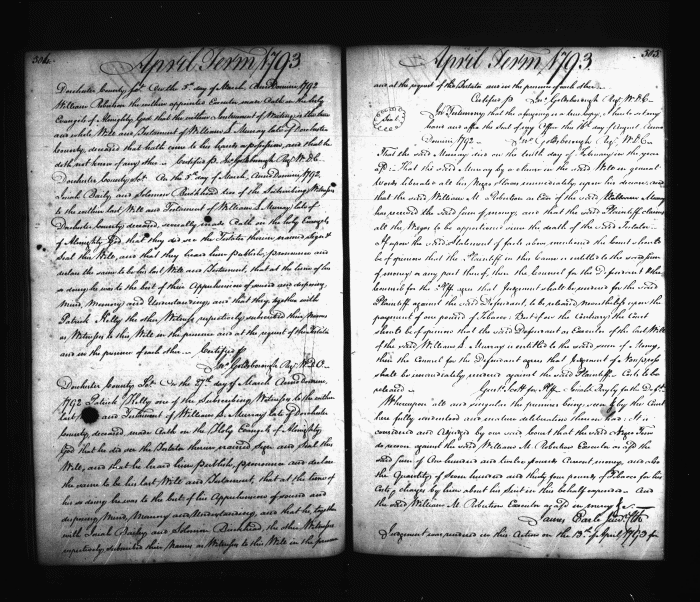 304.
April Term, 1793
Dorchester County, Sct. On the 5th day of March, Anno Domini, 1792
William Robertson the within appointed Executor made Oath on the holy
Evangels of Almighty God that the within Instrument of Writing is the true
and whole Will and Testament of William S. Murray late of Dorchester
County, deceased, that hath come to his hands & possession, and that he
doth not know of any other. Certified Pr. Jno. Goldsborough Reg. W. D. C.
Dorchester County Sct. On the 5th day of March, Anno Domini, 1792,
Jacob Bailey and Solomon Birckhead two of the Subscribing Witnesses
to the within last Will and Testament of William S. Murray late of
Dorchester County, deceased, severally made Oath on the holy Evangels
of Almighty God, that they did see the Testator therein named, sign &
Seal this Will, and that they heard him publish, pronounce and
declare the same to be his last Will and Testament, that at the time of his
so doing he was to the best of their Apprehensions of sound and disposing
Mind, Memory and Understanding, and that they, together with
Patrick Kelly the other Witness, respectively subscribed their Names
as Witnesses to this Will in the presence and at the request of the Testator
and in the presence of each other. Certified Pr.
Jno. Goldsborough Reg. W. D. C.
Dorchester County, Sct. On the 27th day of March Anno Domini,
1792 Patrick Kelly one of the Subscribing Witnesses to the within
last Will and Testament of William S. Murray late of Dorchester
County, deceased, made Oath on the Holy Evangels of Almighty
God that he did see the Testator therein named Sign and Seal this
Will, and that he heard him publish, pronounce and declare
the same to be his last Will and Testament, that at the time of
his so doing, he was to the best of his Apprehension of sound and
disposing Mind, Memory and Understanding, and that he, together
with Jacob Bailey and Solomon Birckhead, the other Witnesses
respectively subscribed their Names as Witnesses to this Will in the presence
305
April Term, 1793
and at the request of the Testator and in the presence of each other.
Certified Pr. Jno. Goldsborough Reg. W. D. C.
In Testimony that the aforegoing is a true copy, I hereto set my
hand and affix the Seal of my Office this 16th day of August Anno
Domini 1792. Jno. Goldsborough Reg. W. D. C.
That the said Murray died on the tenth day of February in the year
That the said Murray by a clause in the said Will in general
Words liberates all his Negro Slaves immediately upon his decease; and
that the said William M. Robertson as Exor of the said William Murray
has received the said sum of money, and that the said Plaintiff claims
all the Wages to be apportioned since the death of the said Testator.
If upon the said Statement of facts above mentioned the Court should
be of opinion that the Plaintiff in this Cause is entitled to the said sum
of money or any part thereof, then the Counsel for the Defendant
Counsel for the Plff. agree that Judgment shall be entered for the said
Plaintiff against the said Defendant, to be released nevertheless upon the
payment of one pound of Tobacco; But if on the Contrary, the Court
should be of opinion that the said Defendant as Executor of the last Will
of the said William S. Murray is entitled to the said sum of Money,
then the Counsel for the Defendant agrees that Judgment of Nonpross
shall be immediately entered against the said Plaintiff. Costs to be
released. for Plff. Josiah Bayly for the Deft.
Whereupon all and singular the premises being seen by the Court
here fully understood and mature deliberation thereon had. It is
considered and adjudged by our said Court that the said Negro
do recover against the said William M. Robertson Executor as afd. the
said sum of One hundred and twelve pounds Current money, and also
the Quantity of Seven hundred and thirty four pounds of Tobacco for his
Costs & charges by him about his Suit in this behalf expended. And
the said William M. Robertson Executor as afd. in mercy &c.
James Earle Junr. Clk
Judgement was rendered in this Action on the 13th of April 1793 for